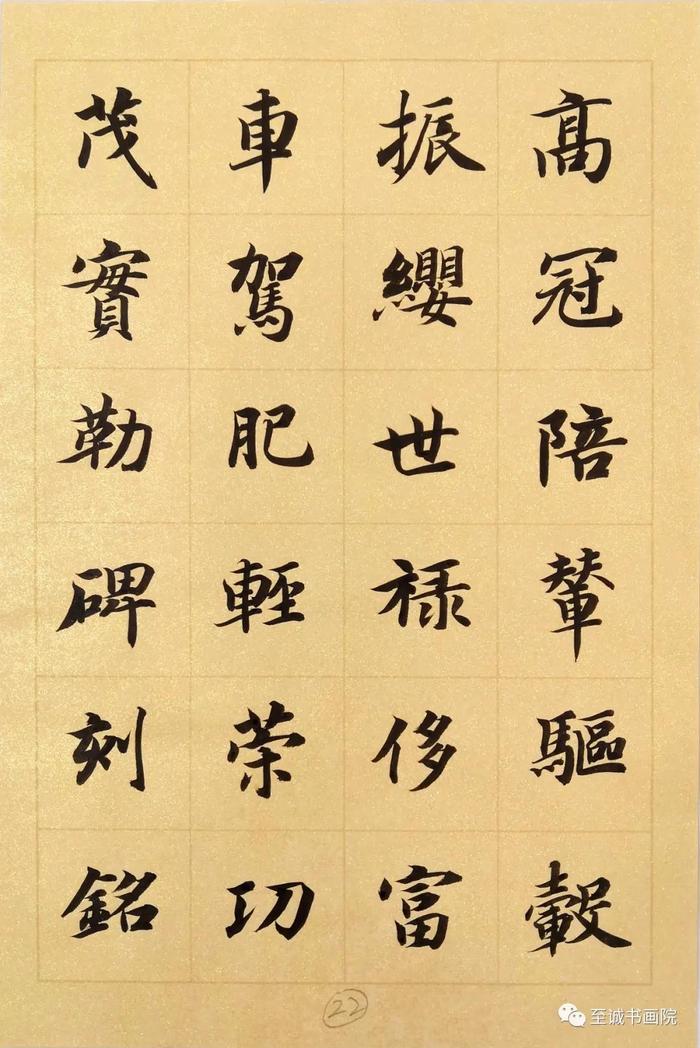 高冠陪輦驅轂
振纓世禄侈富
車駕肥輕荣功
茂實勒碑刻銘
22
至诚书画院